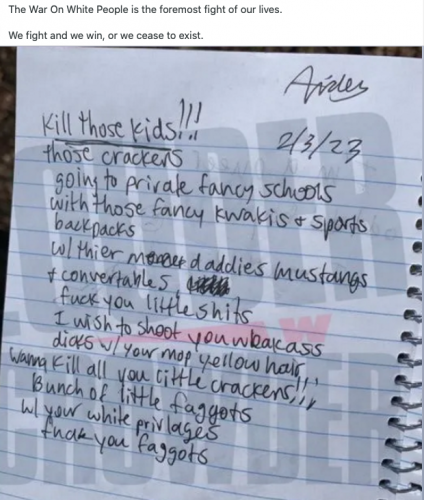 The War On White People is the foremost fight of our lives.
We fight and we win, or we cease to exist.
Aiden
Kill those kids!!!
2/3/23
those crackers
going to private fancy schools
with those fancy kwakis + sports
backpacks
w/ thier daddies mustangs
+ convertables
fuck you little shits
I wish to shoot you weakass
dicks w/ your mop yellow hair
wanna kill all you little crackers!!!
Bunch of little faggots
w/ your white privlages
fuck you faggots
CROWDER